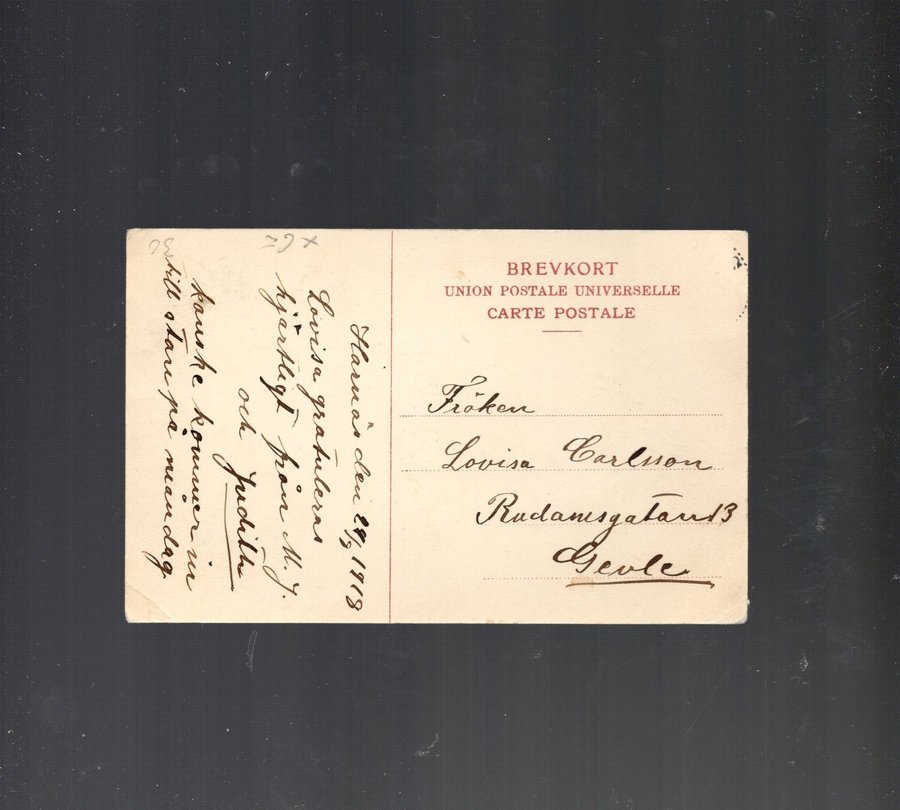 BREVKORT
UNION POSTALE UNIVERSELLE
CARTE POSTALE
Fröken
Lovisa Carlsson
Rudamsgatan 13
Gevle.
Harnäs den 1918
Lovisa gratuleras
hjärtligt från M. J.
och Judith
kanske kommer in
till stan på måndag